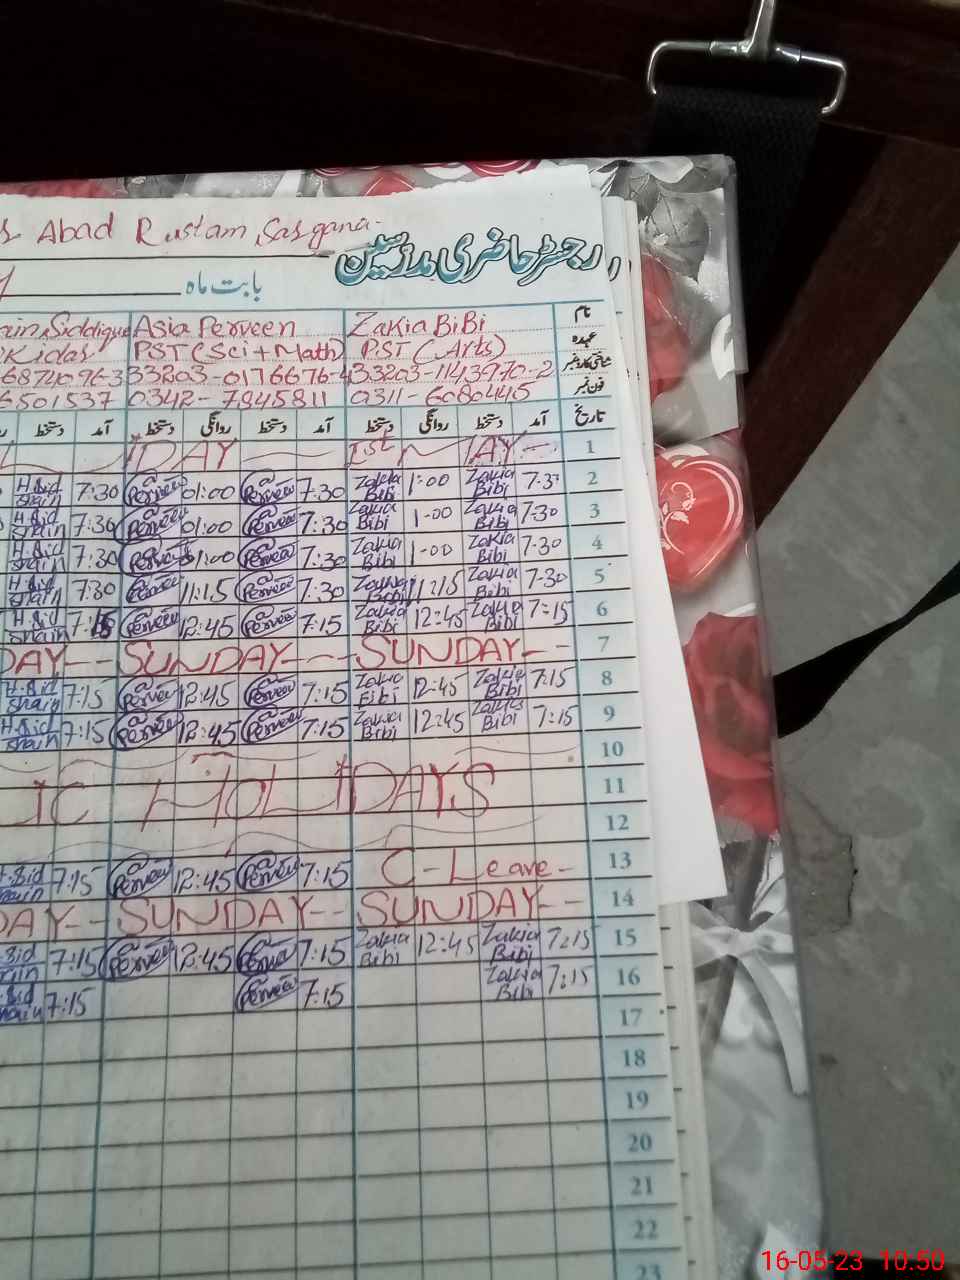 Abad Rustam Sargana
رجسٹر حاضری مدرسین
بابت ماہ
Siddique Asia Perveen Zakia BiBi نام
PST (Sci + Math) PST (Arts) عہدہ
6874096-3 33203-0176676-4 33203-1143970-2 شناختی کارڈ نمبر
6501537 0342-7845811 0311-6080445 فون نمبر
دستخط آمد دستخط روانگی دستخط آمد دستخط روانگی دستخط آمد تاریخ
1st MAY 1
H.Bid shain 7:30 Perveen 01:00 Perveen 7:30 Zakia Bibi 1:00 Zakia Bibi 7-30 2
H.Bid shain 7:30 Perveen 01:00 Perveen 7:30 Zakia Bibi 1-00 Zakia Bibi 7-30 3
H.Bid shain 7:30 Perveen 01:00 Perveen 7:30 Zakia Bibi 1-00 Zakia Bibi 7-30 4
H.Bid shain 7:30 Perveen 11:15 Perveen 7:30 Zakia Bibi 11:15 Zakia Bibi 7-30 5
H.Bid shain 7:15 Perveen 12:45 Perveen 7:15 Zakia Bibi 12:45 Zakia Bibi 7:15 6
DAY-- SUNDAY--- SUNDAY-- 7
H.Bid shain 7:15 Perveen 12:45 Perveen 7:15 Zakia Bibi 12:45 Zakia Bibi 7:15 8
H.Bid shain 7:15 Perveen 12:45 Perveen 7:15 Zakia Bibi 12:45 Zakia Bibi 7:15 9
10
IC HOLIDAYS 11
12
H.Bid shain 7:15 Perveen 12:45 Perveen 7:15 C-Leave- 13
DAY-- SUNDAY-- SUNDAY-- 14
Bid shain 7:15 Perveen 12:45 Perveen 7:15 Zakia Bibi 12:45 Zakia Bibi 7:15 15
Bid shain 7:15 Perveen 7:15 Zakia Bibi 7:15 16
17
18
19
20
21
22
23
16-05-23 10:50